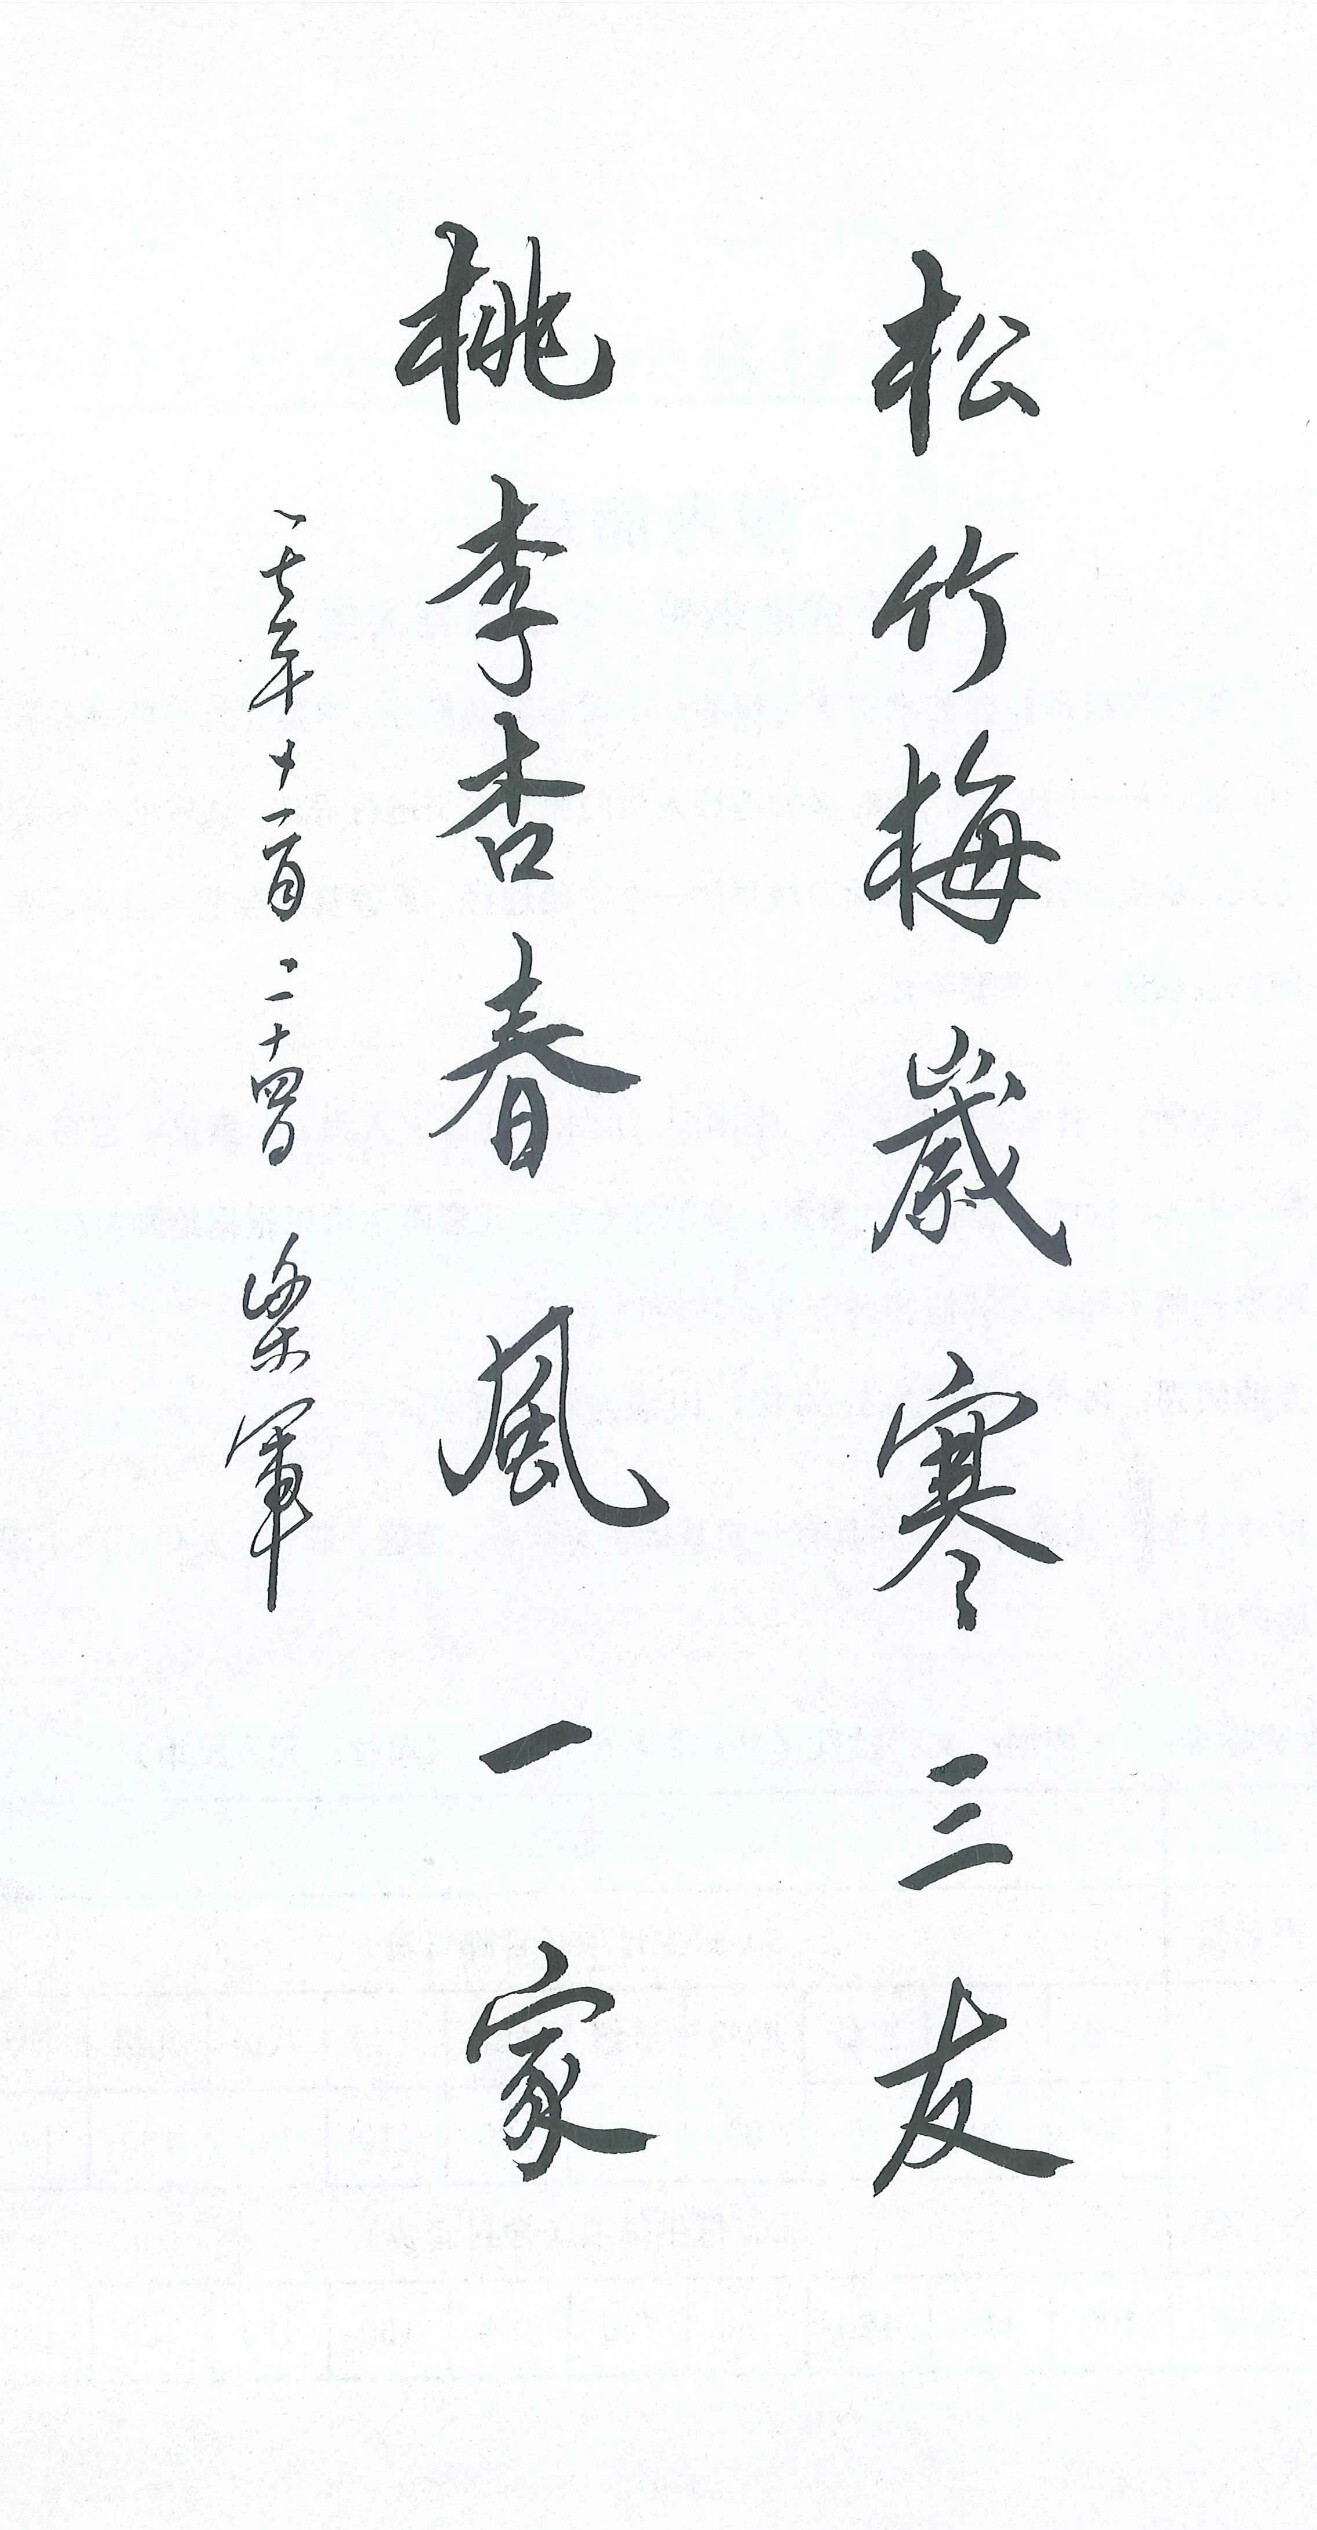 松竹梅歲寒三友
桃李杏春風一家
一七年十一月二十四日 梁軍